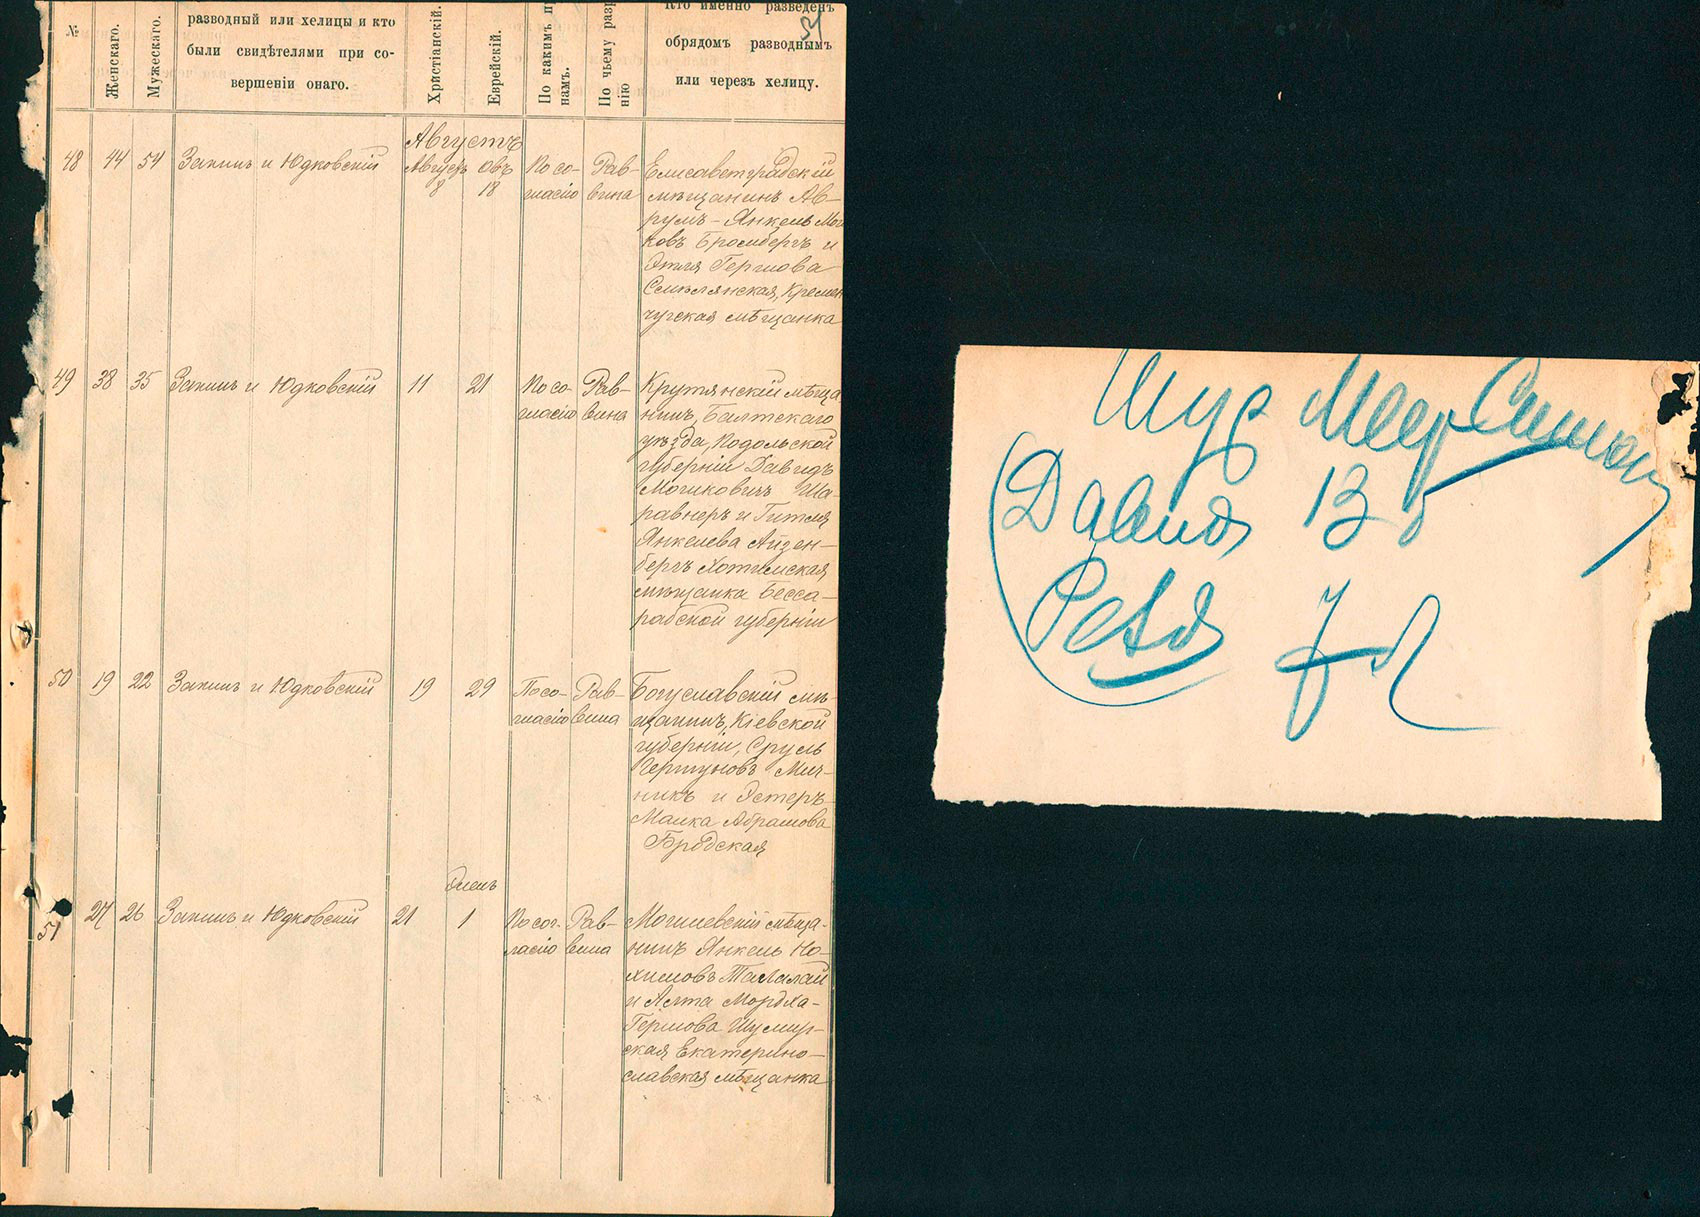 31
№
Женскаго.
Мужескаго.
разводный или хелицы и кто
были свидѣтелями при со-
вершеніи онаго.
Христіанскій.
Еврейскій.
По какимъ
намъ.
По чьему
нію
Кто именно разведенъ
обрядомъ разводнымъ
или черезъ хелицу.
Августъ
48 44 54 Запинъ и Юдковскій Августъ 8 Овъ 18 По со-
гласію Рав-
вина Елисаветградскій
мѣщанинъ Ав-
румъ-Янкель
ковъ Бромбергъ и
Этля Гершова
Смѣлянская, Кремен
чугская мѣщанка
49 38 35 Запинъ и Юдковскій 11 21 По со-
гласію Рав-
вина Крутянскій мѣща
нинъ, Балтскаго
уѣзда, Подольской
губерніи Давидъ
Мошковичъ Ша-
равнеръ и Гитля
Янкелева Айзен-
бергъ Хотинская
мѣщанка Бесса-
рабской губерніи
50 19 22 Запинъ и Юдковскій 19 29 По со-
гласію Рав-
вина Богуславскій мѣ-
щанинъ, Кіевской
губерніи, Сруль
Гершуновъ Мич-
никъ и Эстеръ-
Малка Абрамова
Бродская
Элель
51 27 26 Запинъ и Юдковскій 21 1 По сог-
ласію Рав-
вина Могилевскій мѣща-
нинъ Янкель Но-
химовъ Талалай
и Алта Мордха-
Гершова Шумир-
ская Екатерино-
славская мѣщанка
Шур Меер
Давид 13